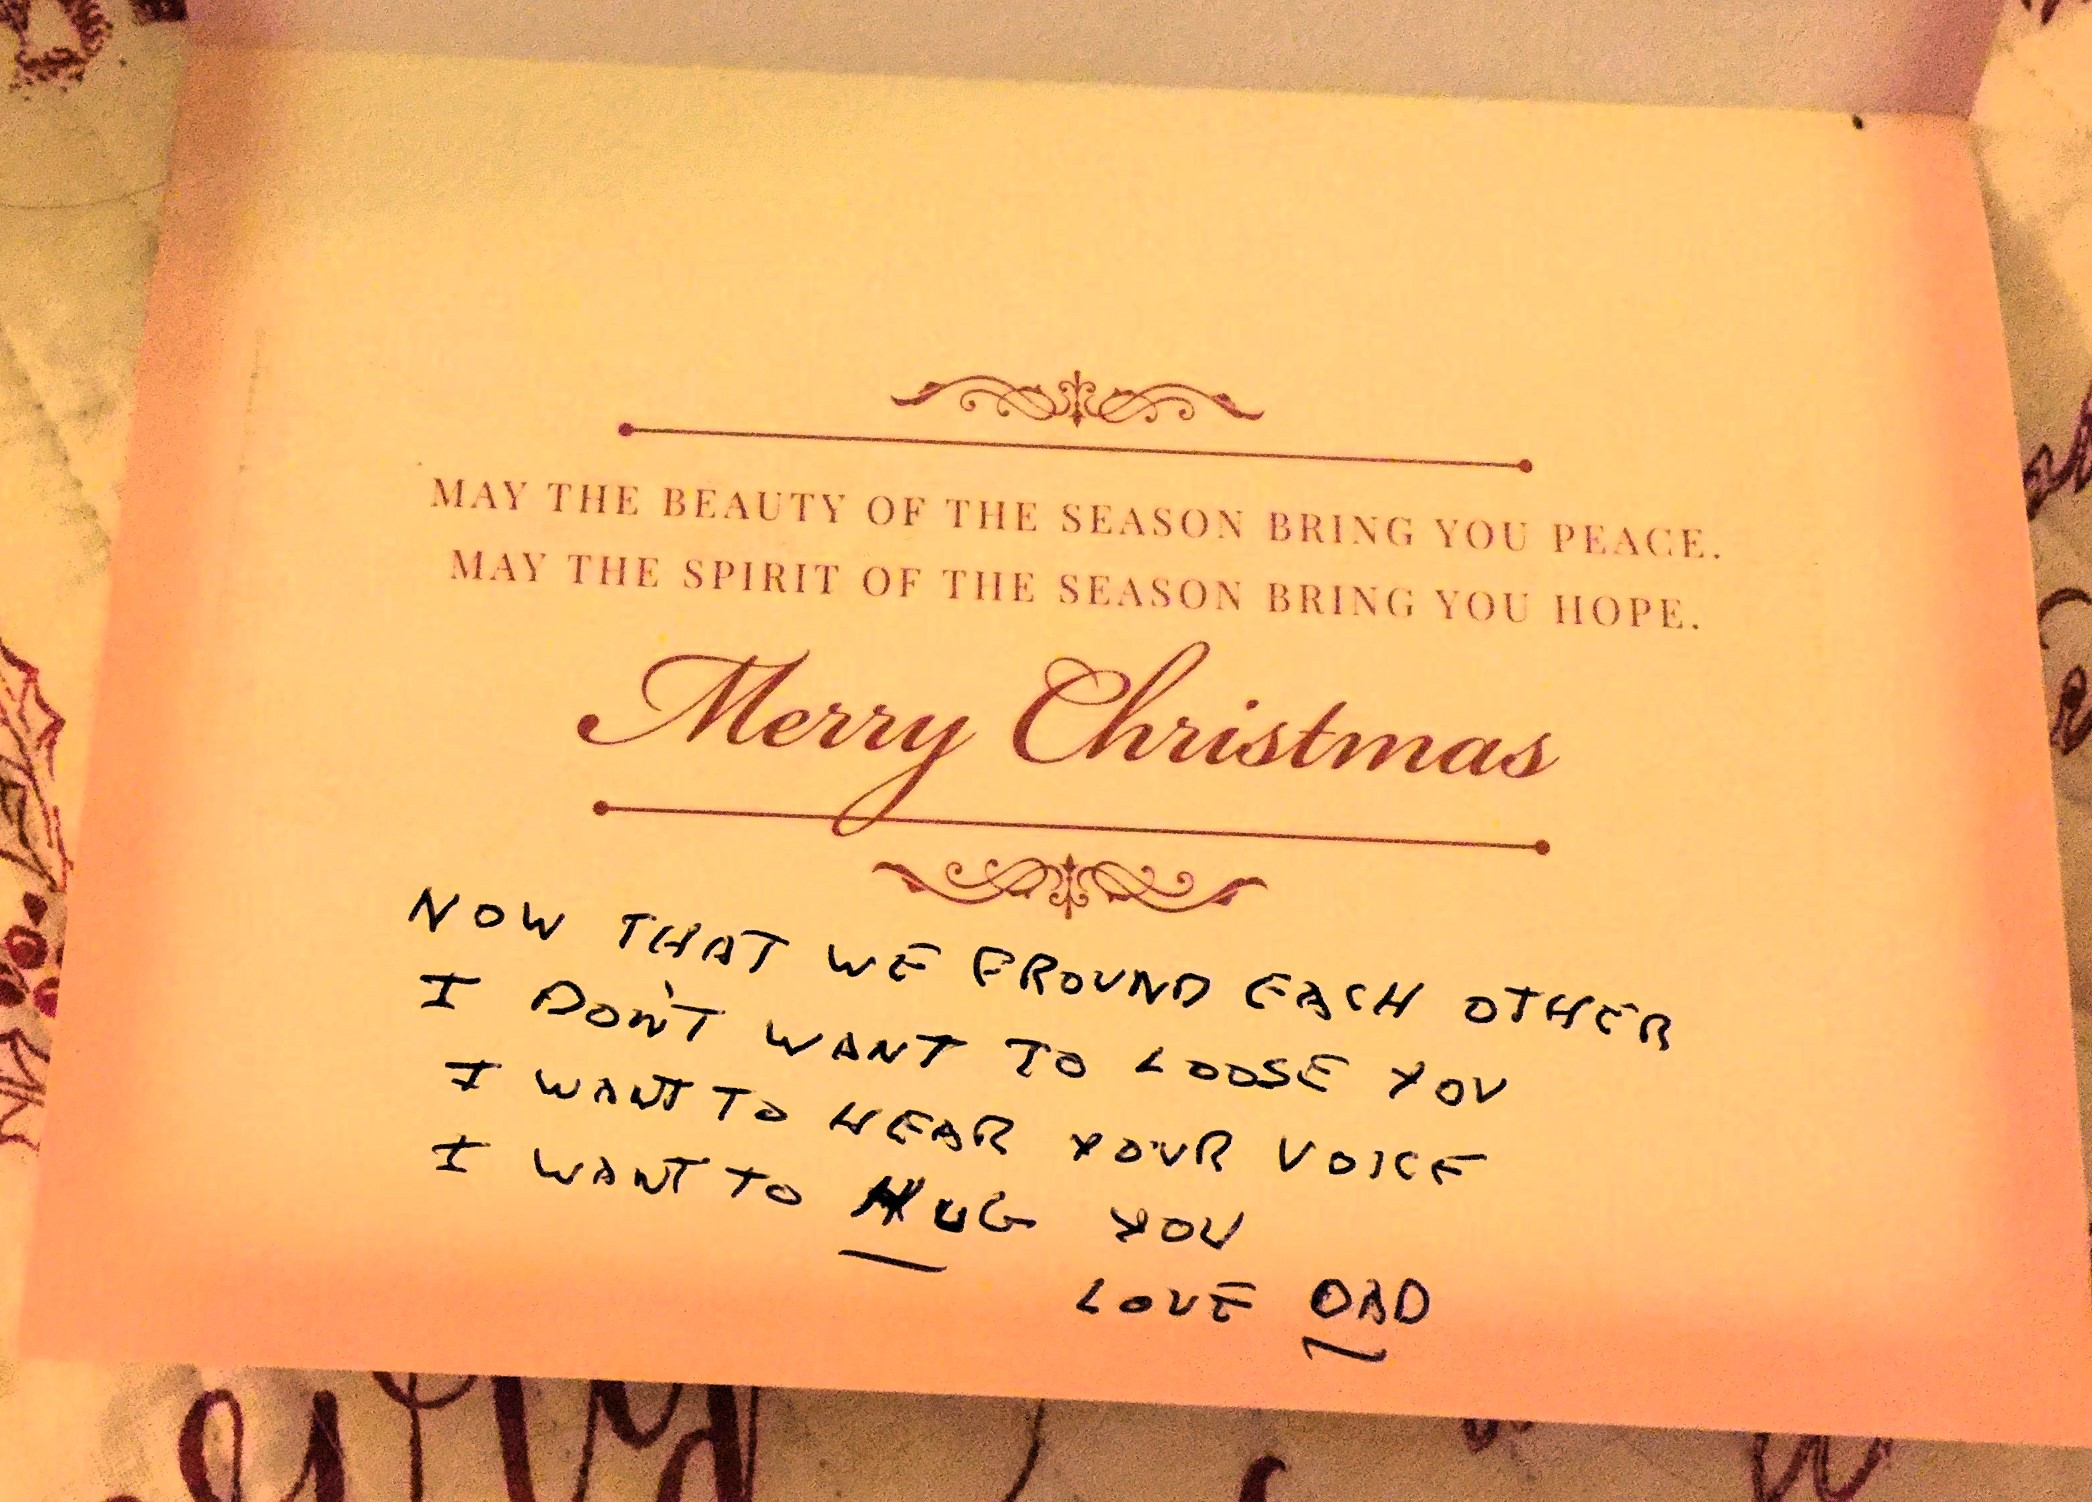 MAY THE BEAUTY OF THE SEASON BRING YOU PEACE.
MAY THE SPIRIT OF THE SEASON BRING YOU HOPE.
Merry Christmas
NOW THAT WE FROUND EACH OTHER
I DON'T WANT TO LOOSE YOU
I WANT TO HEAR YOUR VOICE
I WANT TO HUG YOU
LOVE DAD